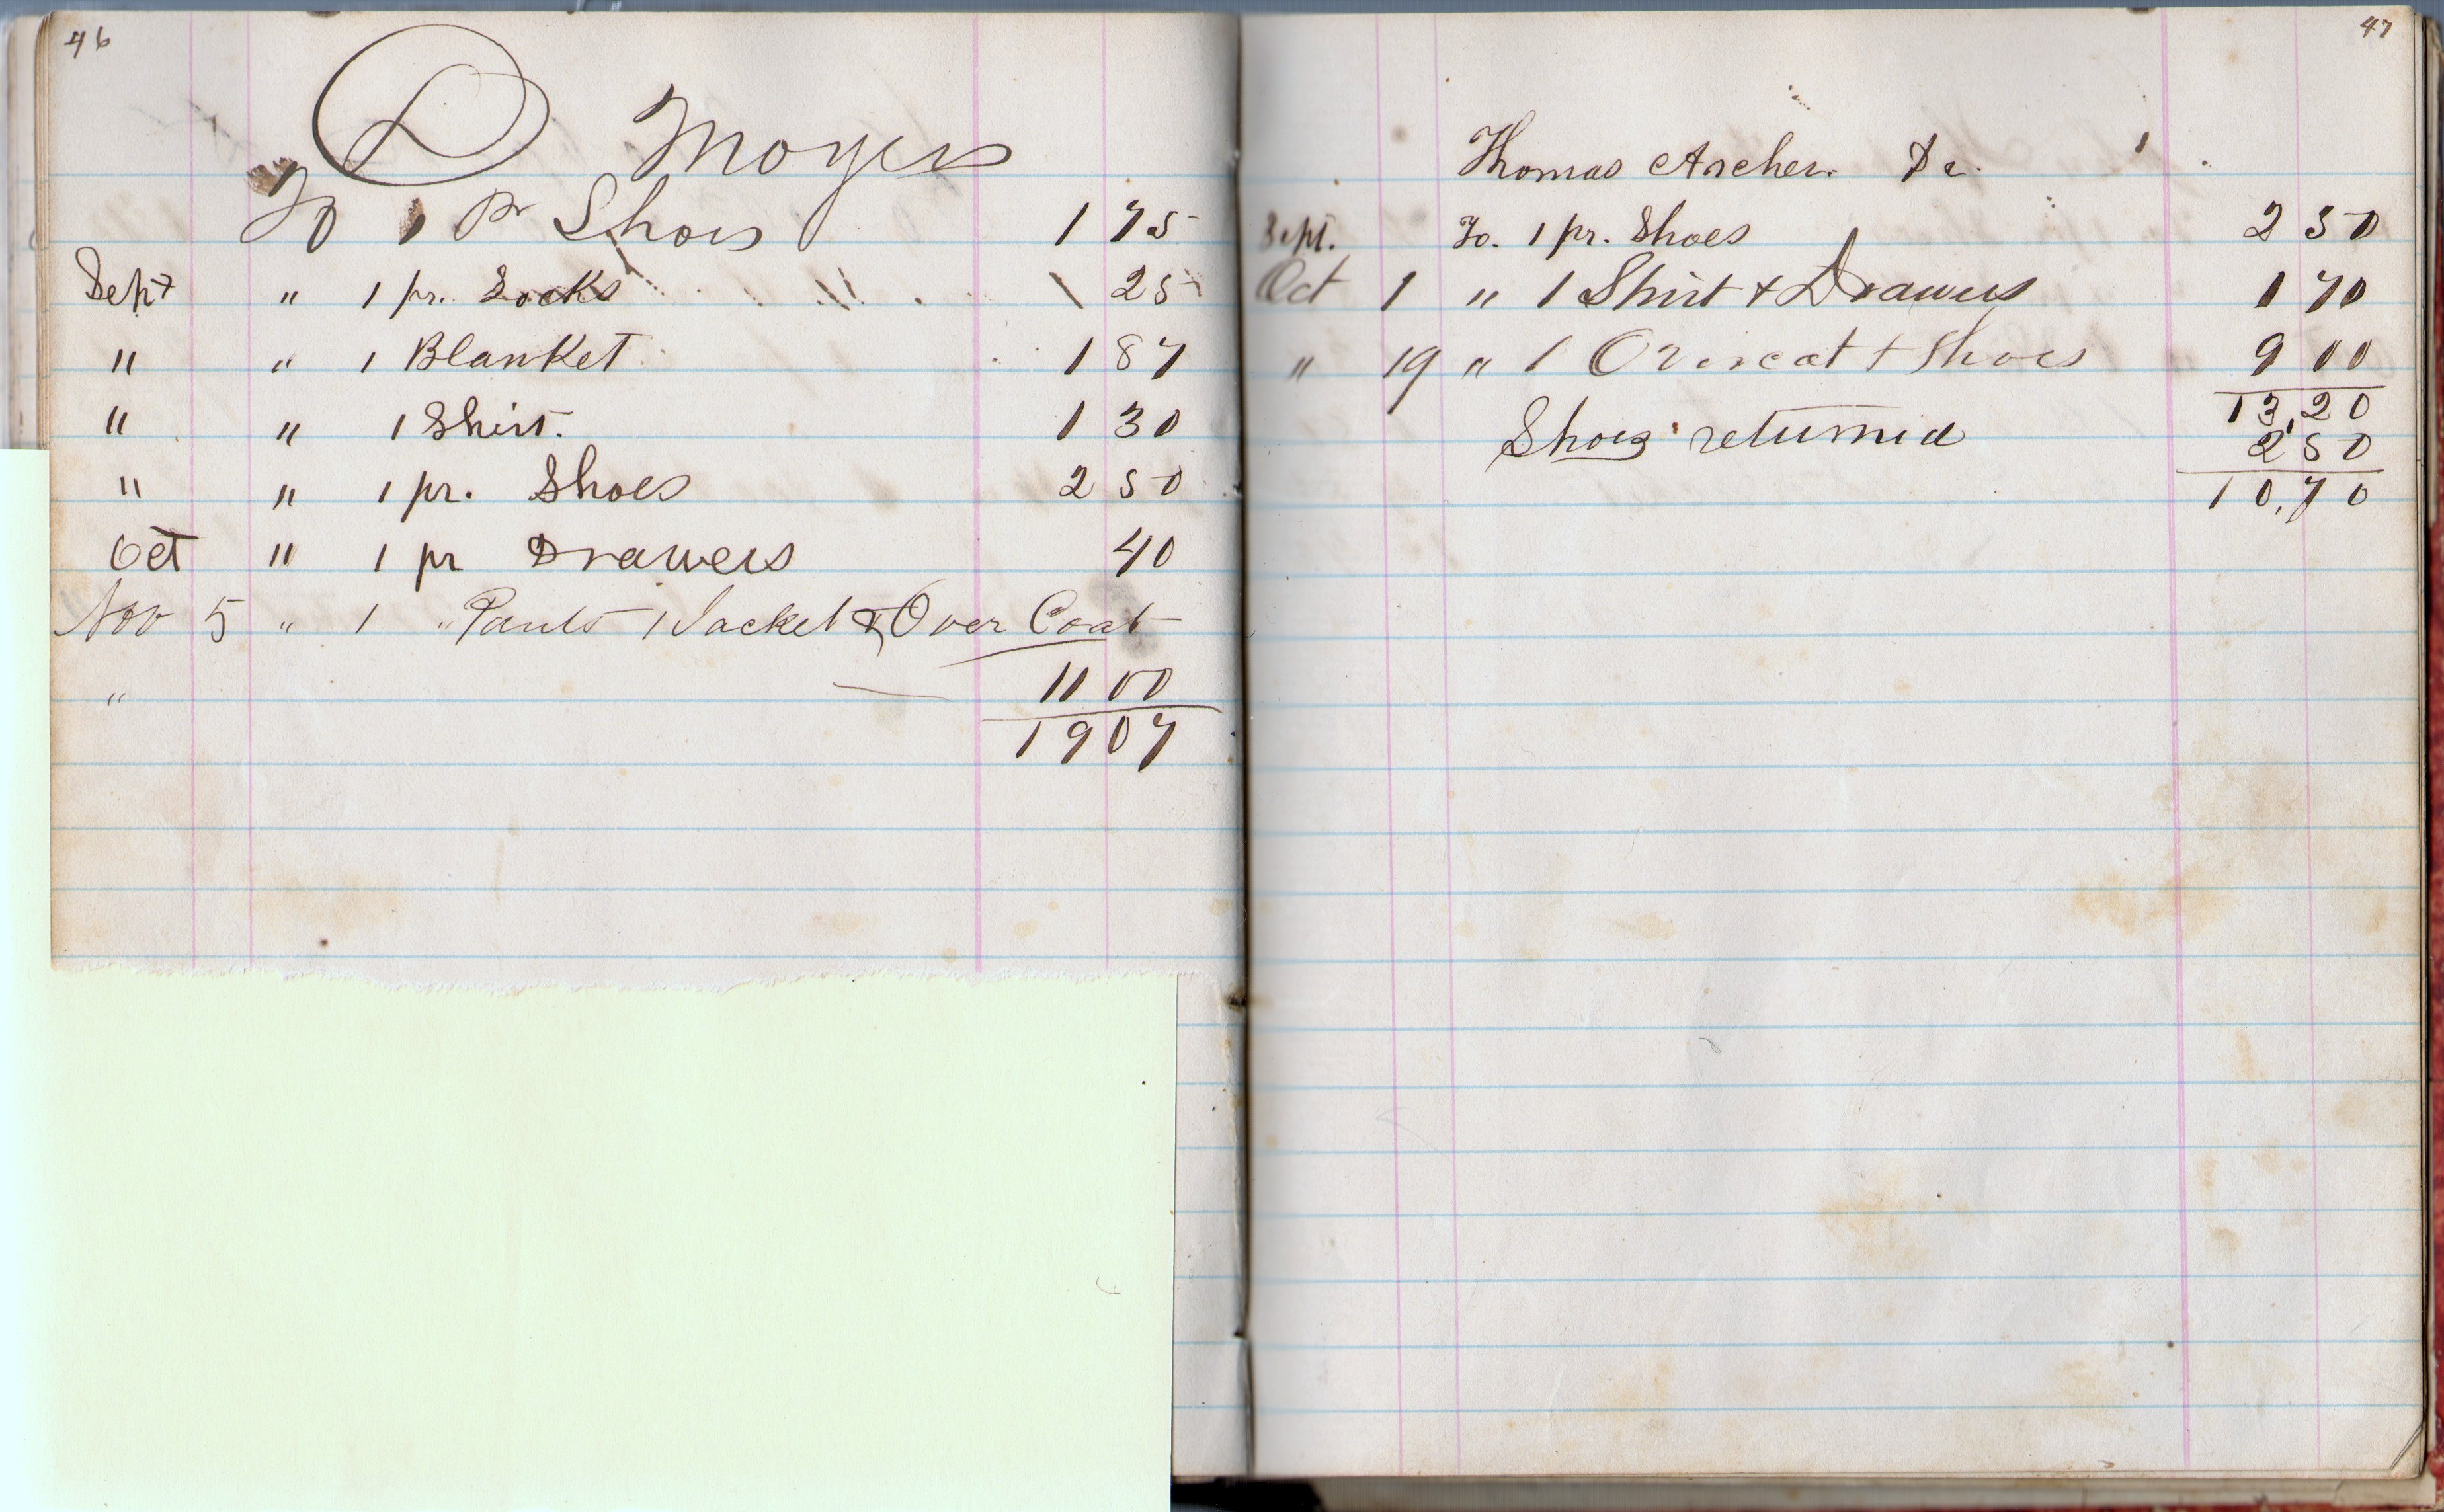 46
D Moyers
To 1 Pr Shoes 1 75
Sept " 1 pr. Socks 25
" " 1 Blanket 1 87
" " 1 Shirt. 1 30
" " 1 pr. Shoes 2 50
Oct " 1 pr Drawers 40
Nov 5 " 1 " Pants 1 Jacket & Over Coat
" 11 00
19 07
47
Thomas Archer. Dr.
Sept. To. 1 pr. Shoes 2 50
Oct 1 " 1 Shirt + Drawers 1 70
" 19 " 1 Overcoat + Shoes 9 00
13,20
Shoes returned 2 50
10,70